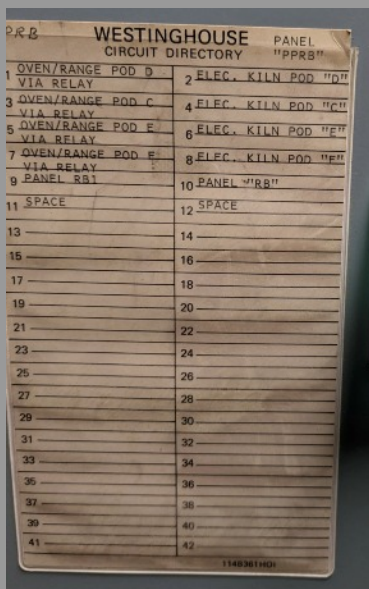 PRB
WESTINGHOUSE
CIRCUIT DIRECTORY
PANEL
"PPRB"
1 OVEN/RANGE POD D
VIA RELAY
2 ELEC. KILN POD "D"
3 OVEN/RANGE POD C
VIA RELAY
4 ELEC. KILN POD "C"
5 OVEN/RANGE POD E
VIA RELAY
6 ELEC. KILN POD "E"
7 OVEN/RANGE POD F
VIA RELAY
8 ELEC. KILN POD "F"
9 PANEL RB1
10 PANEL "RB"
11 SPACE
12 SPACE
13
14
15
16
17
18
19
20
21
22
23
24
25
26
27
28
29
30
31
32
33
34
35
36
37
38
39
40
41
42